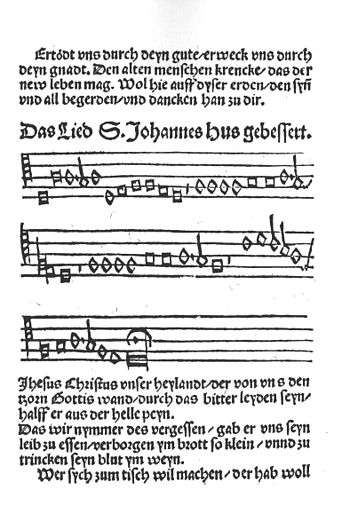 Ertödt vns durch deyn gute/erweck vns durch
deyn gnadt. Den alten menschen krencke/das der
new leben mag. Wol hie auff dyser erden/den syñ
vnd all begerden/vnd dancken han zu dir.
Das Lied S. Johannes Hus gebessert.
Jhesus Christus vnser heylandt/der von vns den
tzorn Gottis wand/durch das bitter leyden seyn/
halff er aus der helle peyn.
Das wir nymmer des vergessen/gab er vns seyn
leib zu essen/verborgen ym brott so klein/vnnd zu
trincken seyn blut ym weyn.
Wer sych zum tisch wil machen/der hab woll